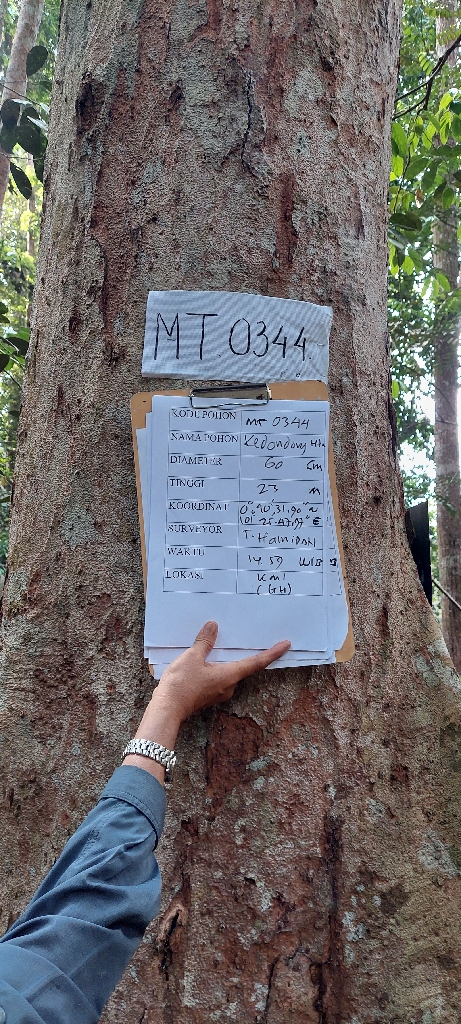 MT. 0344.
KODE POHON MT 0344
NAMA POHON Kedondong Htn
DIAMETER 60 cm
TINGGI 23 m
KOORDINAT
SURVEYOR T. Hamidan
WAKTU 14.59 WIB
LOKASI KMI
(GH)